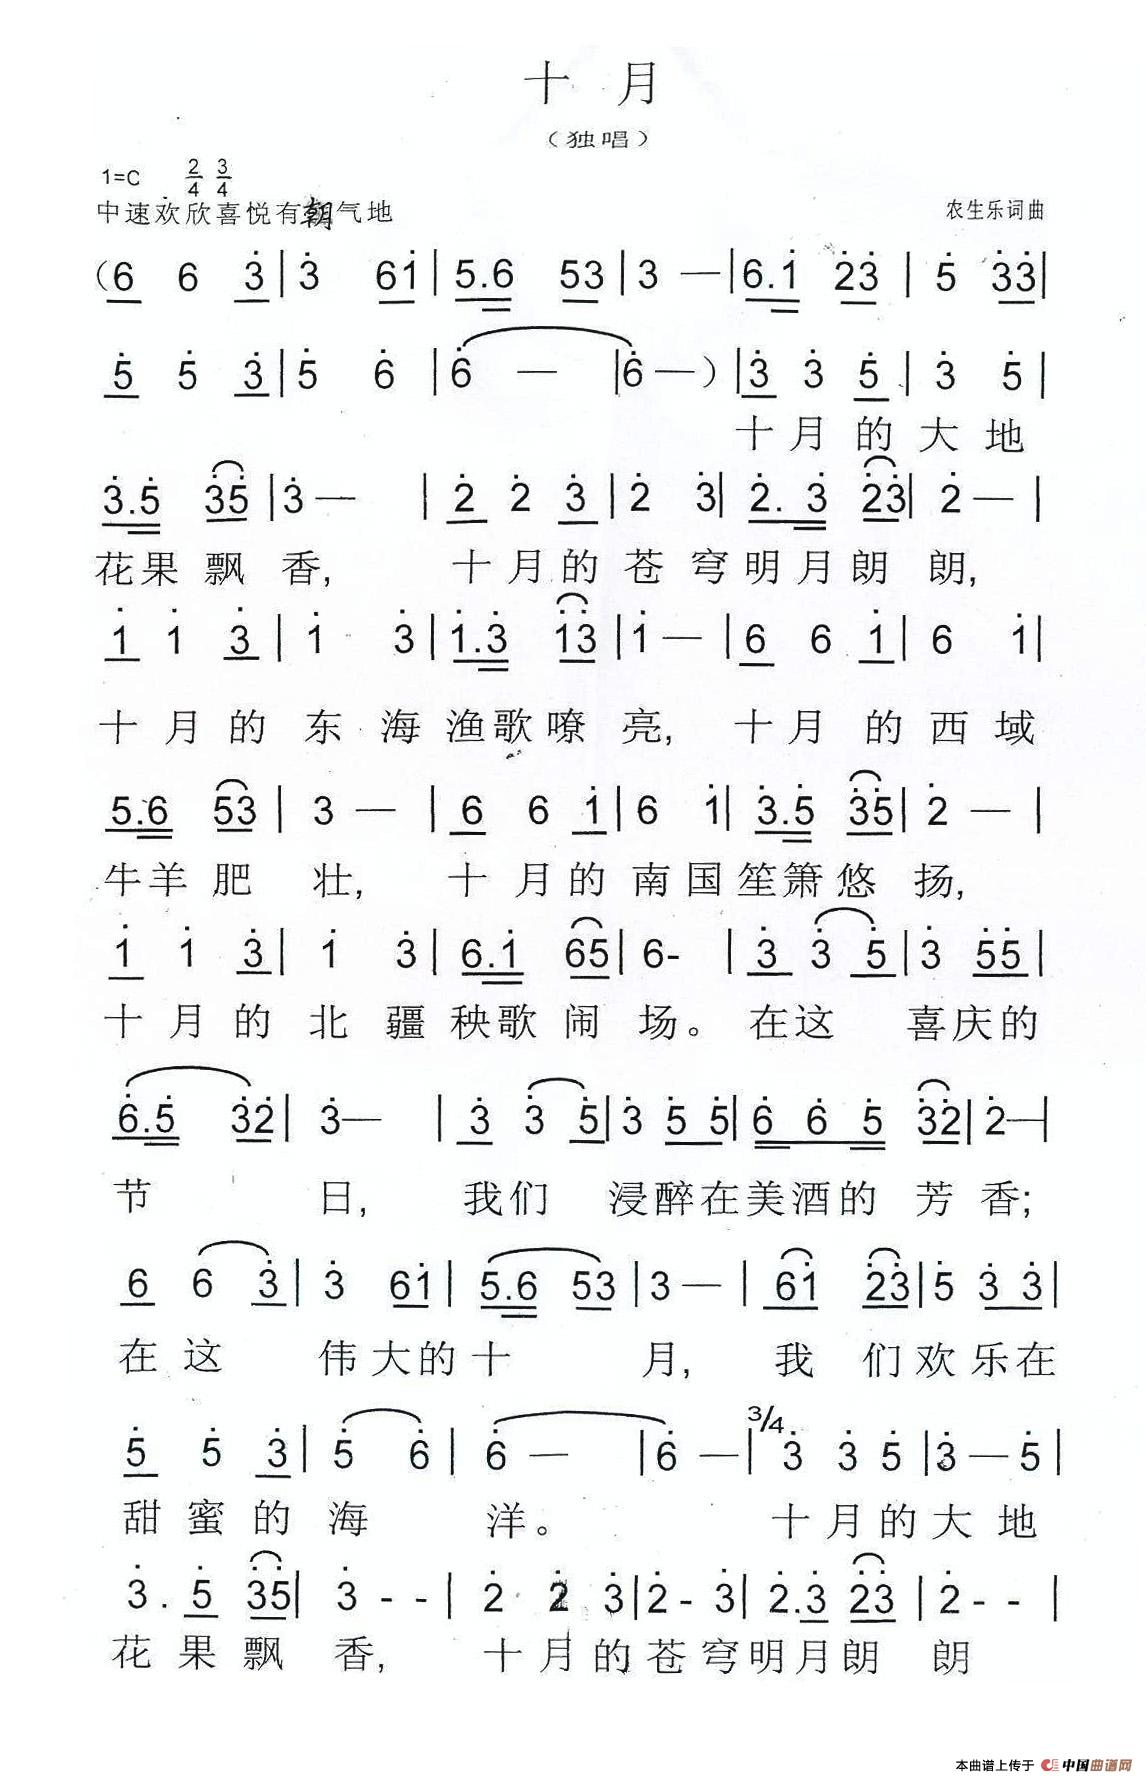 十 月
（独唱）
1=C 2/4 3/4
中速欢欣喜悦有朝气地
农生乐词曲
(6 6 3̇ | 3̇ 6i̇ | 5.6 53 | 3 — | 6.i̇ 2̇3̇ | 5̇ 3̇3̇ |
5̇ 5̇ 3̇ | 5̇ 6̇ | 6̇ — | 6̇ — ) | 3̇ 3̇ 5̇ | 3̇ 5̇ |
十月的大地
3̇.5̇ 3̇5̇ | 3̇ — | 2̇ 2̇ 3̇ | 2̇ 3̇ | 2̇. 3̇ 2̇3̇ | 2̇ — |
花果飘香, 十月的苍穹明月朗朗,
1̇ 1̇ 3̇ | 1̇ 3̇ | 1̇.3̇ 1̇3̇ | 1̇ — | 6 6 1̇ | 6 1̇ |
十月的东海渔歌嘹亮, 十月的西域
5.6 53 | 3 — | 6 6 1̇ | 6 1̇ | 3̇.5̇ 3̇5̇ | 2̇ — |
牛羊肥壮, 十月的南国笙箫悠扬,
1̇ 1̇ 3̇ | 1̇ 3̇ | 6.1̇ 65 | 6- | 3̇ 3̇ 5̇ | 3̇ 5̇5̇ |
十月的北疆秧歌闹场。在这 喜庆的
6̇.5̇ 3̇2̇ | 3̇ — | 3̇ 3̇ 5̇ | 3̇ 5̇ 5̇ | 6̇ 6̇ 5̇ 3̇2̇ | 2̇ — |
节 日, 我们 浸醉在美酒的芳香;
6 6 3̇ | 3̇ 61̇ | 5.6 53 | 3 — | 61̇ 2̇3̇ | 5̇ 3̇ 3̇ |
在这 伟大的十 月, 我们欢乐在
5̇ 5̇ 3̇ | 5̇ 6̇ | 6̇ — | 6̇ — | 3/4 3̇ 3̇ 5̇ | 3̇ — 5̇ |
甜蜜的海 洋。 十月的大地
3̇ . 5̇ 3̇5̇ | 3̇ - - | 2̇ 2̇ 3̇ | 2̇ - 3̇ | 2̇.3̇ 2̇3̇ | 2̇ - - |
花果飘 香, 十月的苍穹明月朗 朗
本曲谱上传于 中国曲谱网